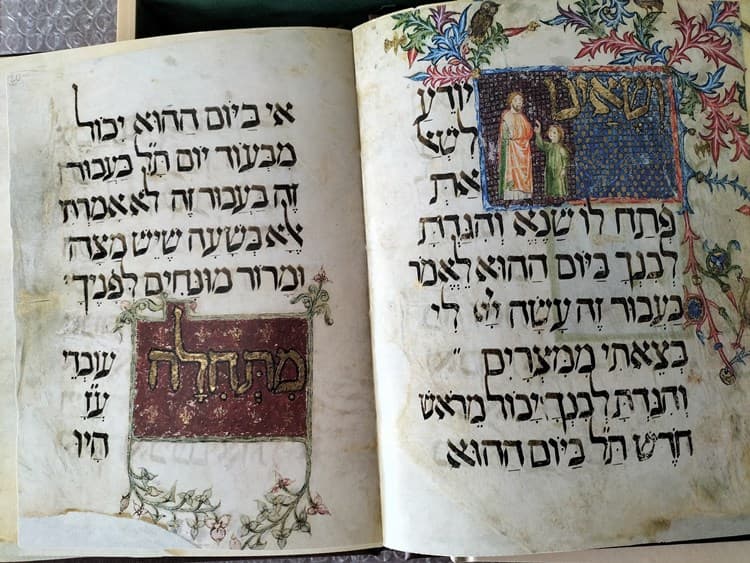 ושאינו יודע
לשאל
את
פתח לו שנא והגדת
לבנך ביום ההוא לאמר
בעבור זה עשה לי
בצאתי ממצרים
והגדת לבנך יכול מראש
חדש ת״ל ביום ההוא
אי ביום ההוא יכול
מבעוד יום ת״ל בעבור
זה בעבור זה לא אמרת
אלא בשעה שיש מצה
ומרור מונחים לפניך
מתחלה עובדי
ע״ז
היו